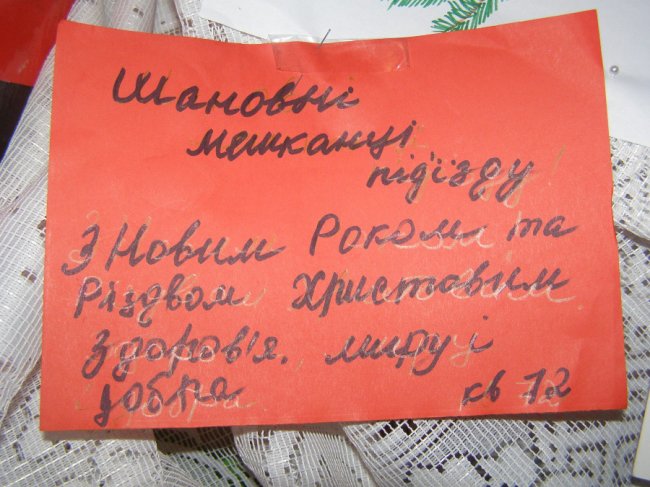 Шановні
мешканці
під'їзду!
З Новим Роком та
Різдвом Христовим
Здоров'я, миру і
добра
кв 12